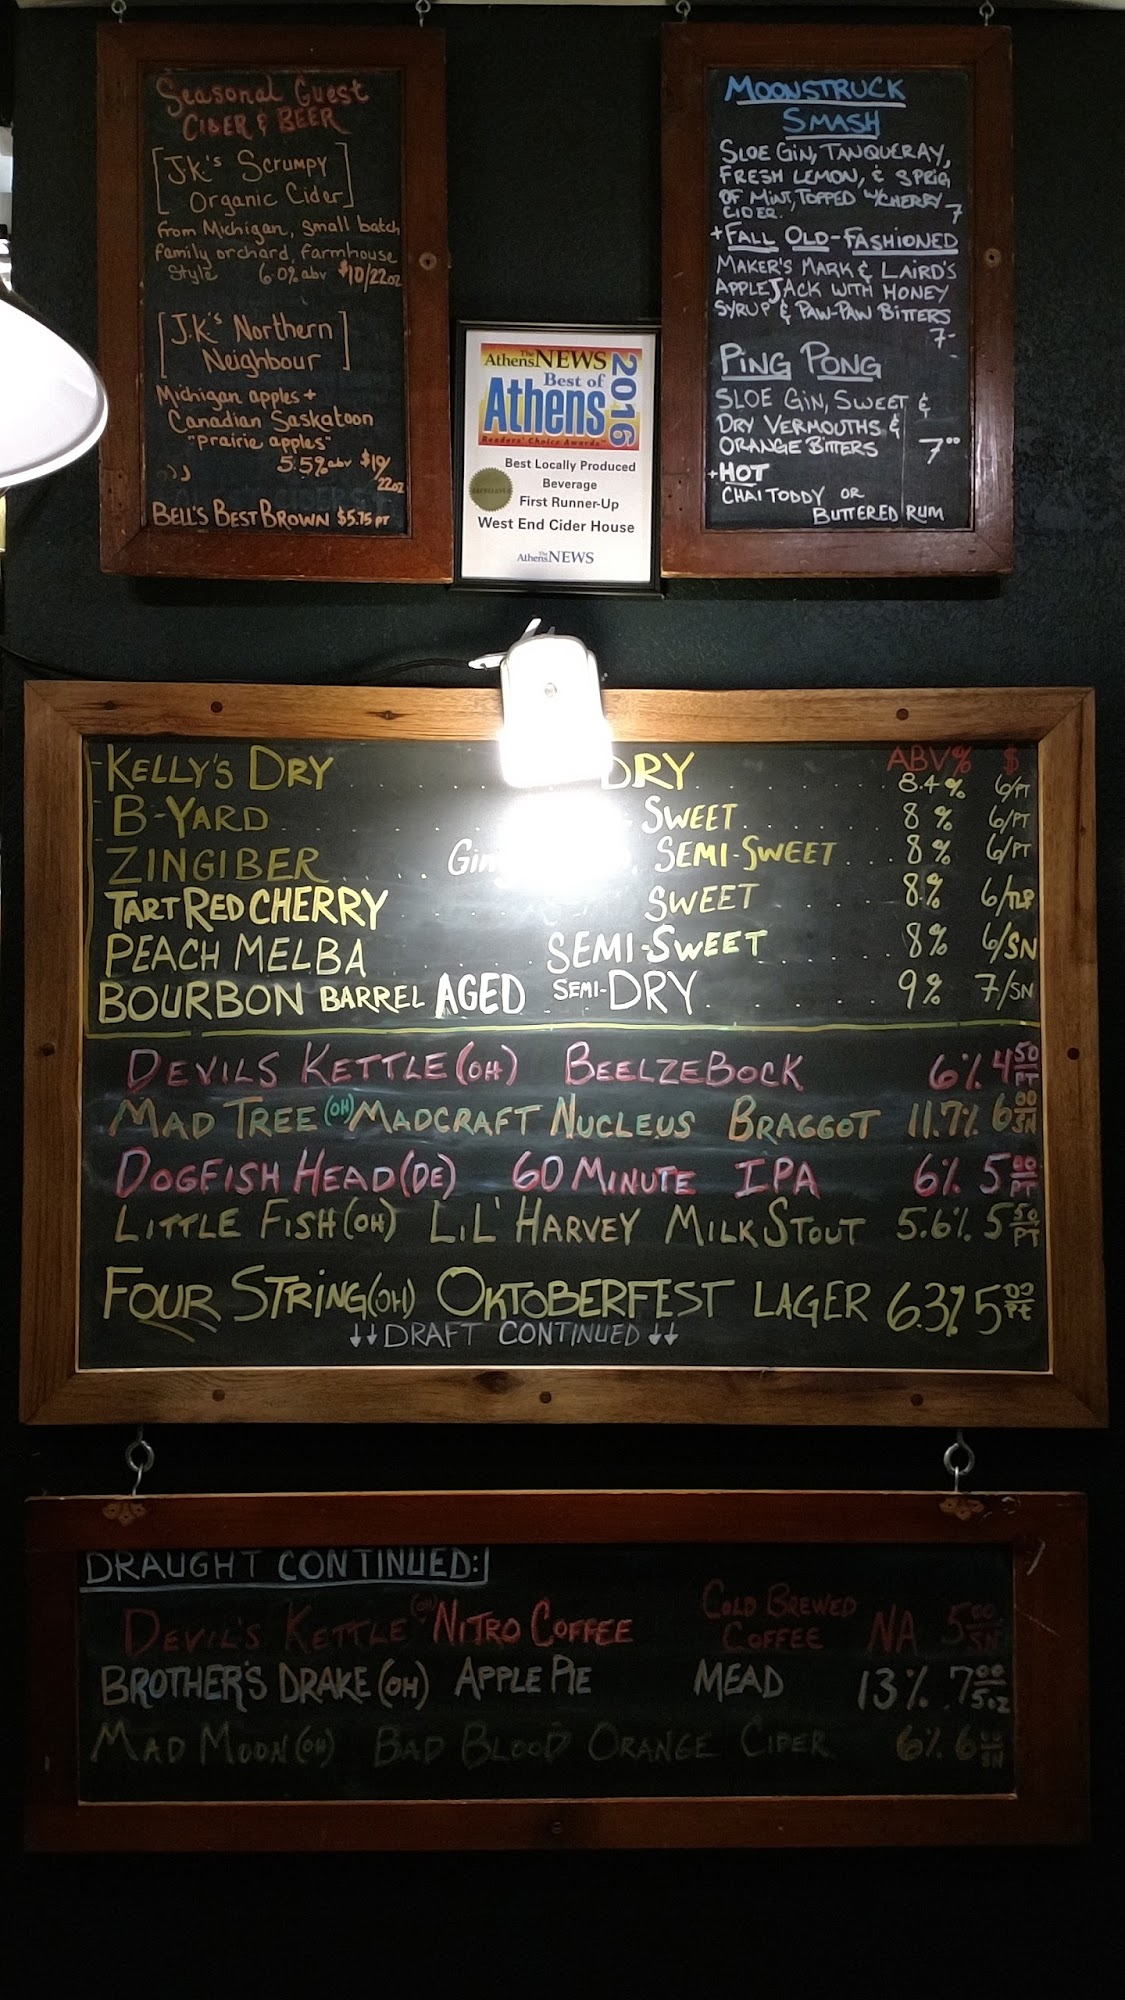 Seasonal Guest
CIDER & BEER
[J.K.'s Scrumpy
Organic Cider]
from Michigan, small batch
family orchard, farmhouse
style 6.0% abv $10/22oz
[J.K.'s Northern
Neighbour]
Michigan apples +
Canadian Saskatoon
"prairie apples"
5.5% abv $19/22oz
BELL'S BEST BROWN $5.75 PT
The AthensNEWS
Best of
Athens
2016
Readers' Choice Awards
Best Locally Produced
Beverage
First Runner-Up
West End Cider House
The AthensNEWS
MOONSTRUCK
SMASH
SLOE GIN, TANQUERAY,
FRESH LEMON, & SPRIG
OF MINT, TOPPED W/CHERRY
CIDER. 7
+FALL OLD-FASHIONED
MAKER'S MARK & LAIRD'S
APPLEJACK WITH HONEY
SYRUP & PAW-PAW BITTERS
7-
PING PONG
SLOE GIN, SWEET &
DRY VERMOUTHS &
ORANGE BITTERS 7.00
+HOT
CHAI TODDY OR
BUTTERED RUM
ABV% $
KELLY'S DRY DRY 8.4% 6/PT
B-YARD SWEET 8% 6/PT
ZINGIBER Gin SEMI-SWEET 8% 6/PT
TART RED CHERRY SWEET 8% 6/TLP
PEACH MELBA SEMI-SWEET 8% 6/SN
BOURBON BARREL AGED SEMI-DRY 9% 7/SN
DEVILS KETTLE (OH) BEELZEBOCK 6% 4.50 PT
MAD TREE (OH) MADCRAFT NUCLEUS BRAGGOT 11.7% 6.00 SN
DOGFISH HEAD (DE) 60 MINUTE IPA 6% 5.00 PT
LITTLE FISH (OH) LIL' HARVEY MILK STOUT 5.6% 5.50 PT
FOUR STRING (OH) OKTOBERFEST LAGER 6.3% 5.00 PT
↓↓DRAFT CONTINUED↓↓
DRAUGHT CONTINUED:
DEVIL'S KETTLE (OH) NITRO COFFEE COLD BREWED COFFEE NA 5.00 SN
BROTHER'S DRAKE (OH) APPLE PIE MEAD 13% 7.00 5oz
MAD MOON (OH) BAD BLOOD ORANGE CIDER 6% 6.00 SN